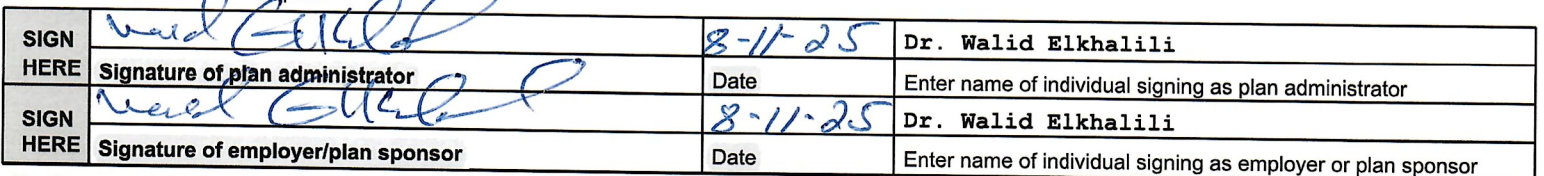 SIGN HERE Walid Elkhalili 8-11-25 Dr. Walid Elkhalili
Signature of plan administrator Date Enter name of individual signing as plan administrator
SIGN HERE Walid Elkhalili 8-11-25 Dr. Walid Elkhalili
Signature of employer/plan sponsor Date Enter name of individual signing as employer or plan sponsor